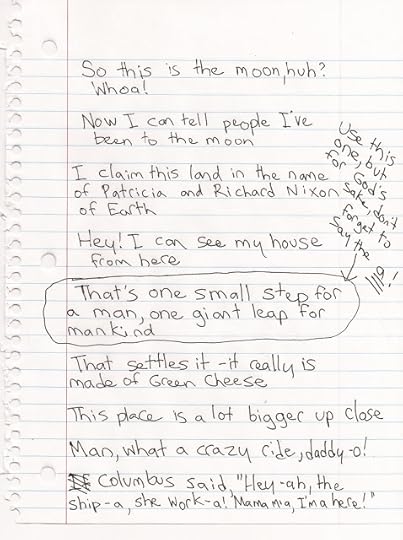 So this is the moon, huh?
Whoa!
Now I can tell people I've
been to the moon
I claim this land in the name
of Patricia and Richard Nixon
of Earth
Hey! I can see my house
from here
Use this
one, but
for God's
sake, don't
forget to
say the
"a"!
That's one small step for
a man, one giant leap for
mankind
That settles it - it really is
made of Green Cheese
This place is a lot bigger up close
Man, what a crazy ride, daddy-o!
Columbus said, "Hey-ah, the
ship-a, she work-a! Mama mia, I'm a here!"